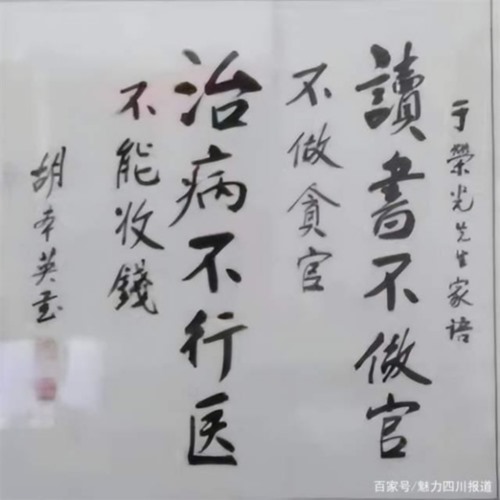 于榮光先生家语
讀書不做官
不做貪官
治病不行医
不能收錢
胡本英
百家号/魅力四川报道